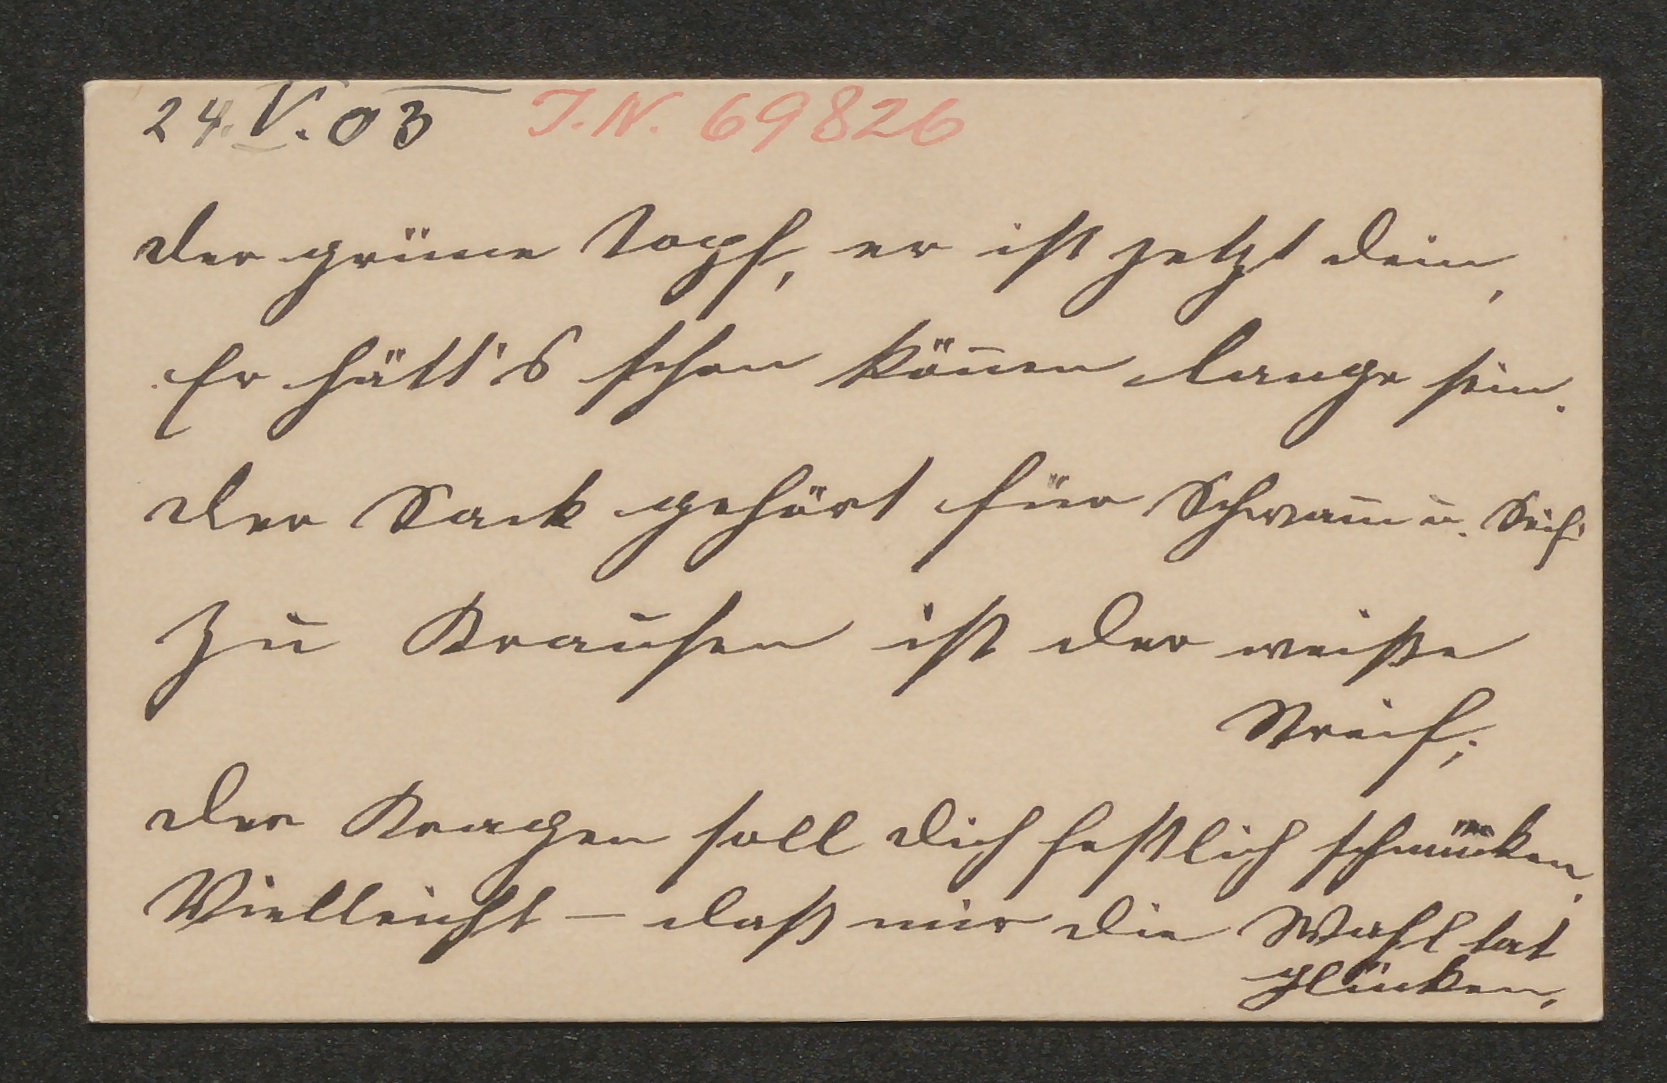 24.V.03 I.N. 69826
Der grüne Topf, er ist jetzt dein,
Er hätt's schon könen lange sein.
Der Sack gehört für Schwam u. Seif'
Zu Krausen ist der weiße
Streif;
Der Kragen soll dich festlich schmücken,
Vielleicht – daß mir die Wahl tat
glücken.